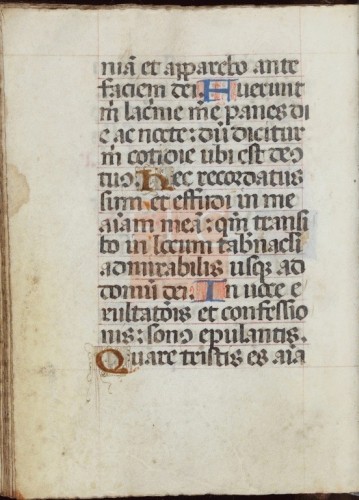 niā et apparebo ante
faciem dei. Fuerunt
m̄ lacͥme mͤe panes di
e ac nocte: dū dicitur
m̄ cotidie ubi est deꝰ
tuꝰ. Hec recordatus
sum et effudi in me
aīam meā: qm̄ transi
bo in locum tabnacli
admirabilis usqꝫ ad
domū dei. In uoce e
xultatōis et confessio
nis: sonꝰ epulantis.
Quare tristis es aīa